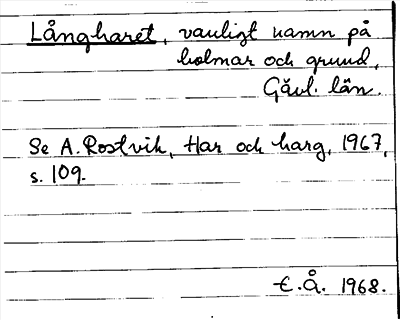 Långharet, vanligt namn på
holmar och grund,
Gävl. län.
Se A. Rostvik, Har och harg, 1967,
s. 109.
E.Å. 1968.